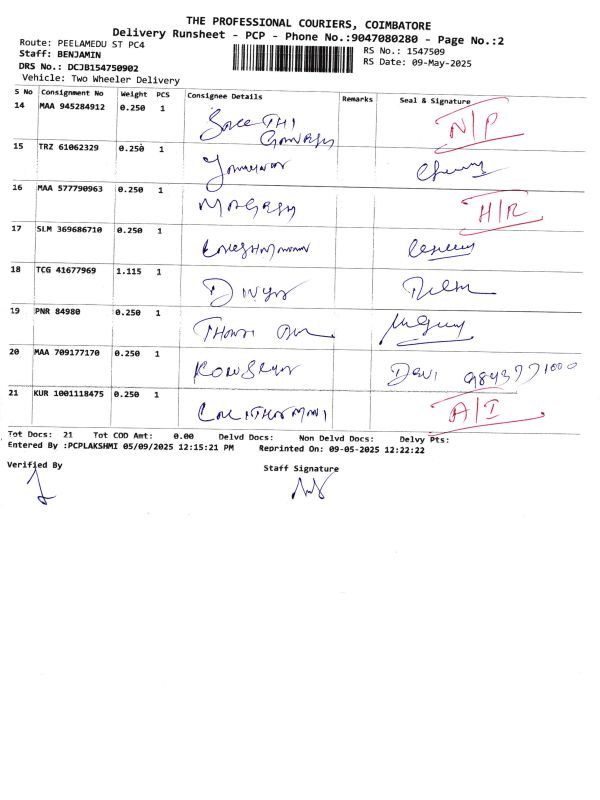 THE PROFESSIONAL COURIERS, COIMBATORE
Delivery Runsheet - PCP - Phone No.:9047080280 - Page No.:2
Route: PEELAMEDU ST PC4
RS No.: 1547509
Staff: BENJAMIN
RS Date: 09-May-2025
DRS No.: DCJB154750902
Vehicle: Two Wheeler Delivery
S No Consignment No Weight PCS Consignee Details Remarks Seal & Signature
14 MAA 945284912 0.250 1 N/P
15 TRZ 61062329 0.250 1
16 MAA 577790963 0.250 1 H/R
17 SLM 369686710 0.250 1
18 TCG 41677969 1.115 1 Divya
19 PNR 84980 0.250 1
20 MAA 709177170 0.250 1 Devi 9843771000
21 KUR 1001118475 0.250 1 A/I
Tot Docs: 21 Tot COD Amt: 0.00 Delvd Docs: Non Delvd Docs: Delvy Pts:
Entered By :PCPLAKSHMI 05/09/2025 12:15:21 PM Reprinted On: 09-05-2025 12:22:22
Verified By Staff Signature